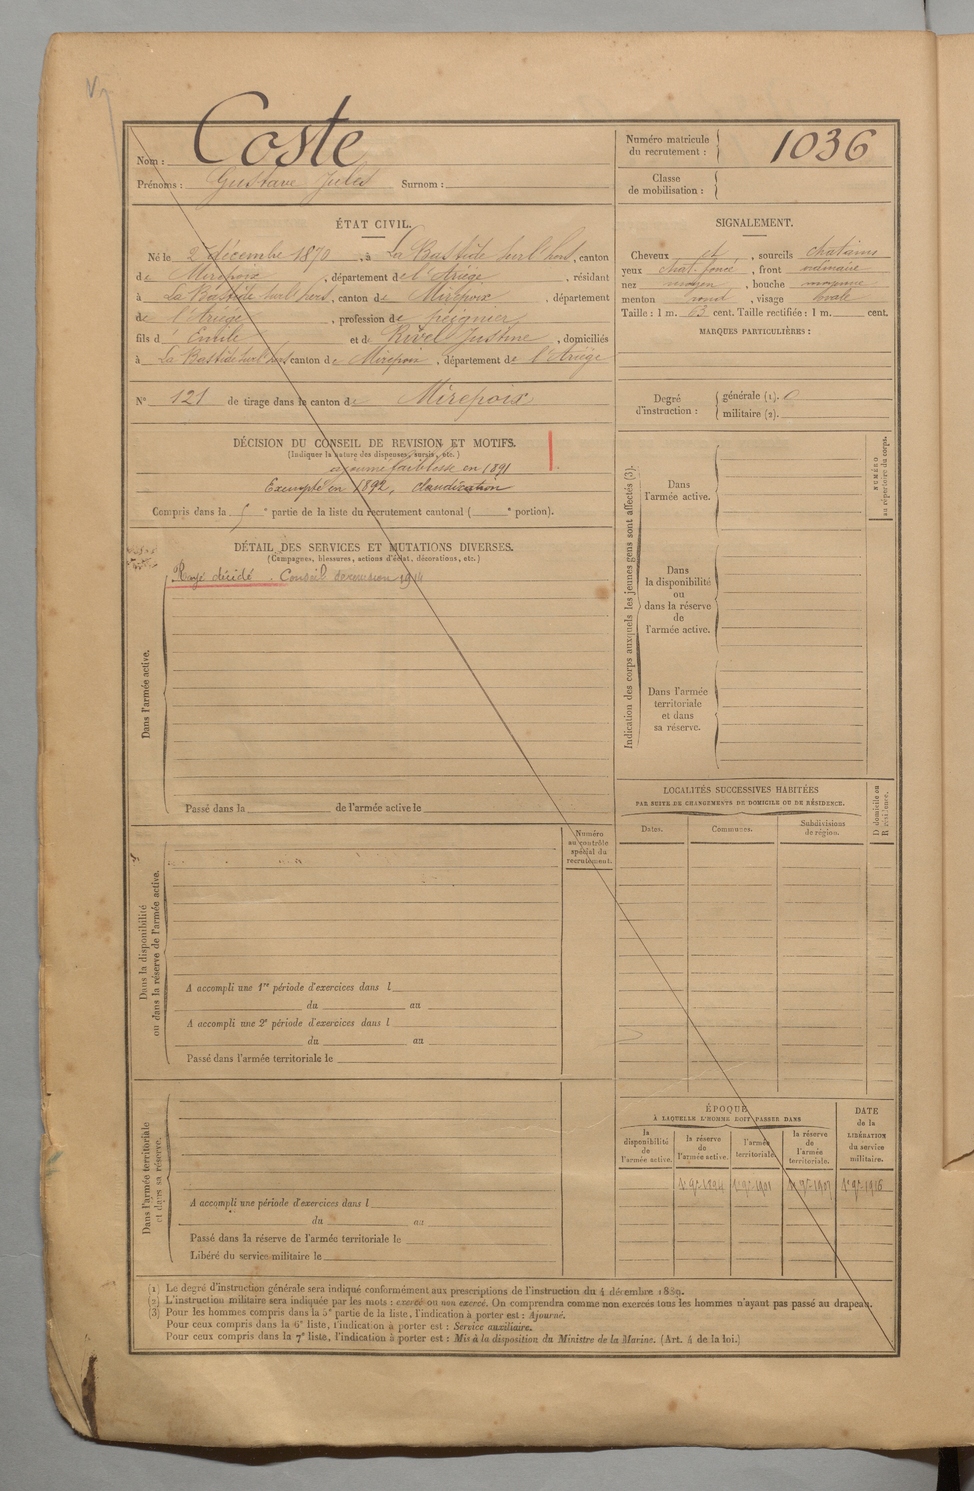 Nom : Coste
Prénoms : Gustave Jules Surnom :
Numéro matricule du recrutement : 1036
Classe de mobilisation :
ÉTAT CIVIL.
Né le 2 décembre 1870, à La Bastide sur l'hers, canton
de Mirepoix, département de l'Ariège, résidant
à La Bastide sur l'hers, canton de Mirepoix, département
de l'Ariège, profession de peignier
fils d' Emile et de Rivel Justine, domiciliés
à La Bastide sur l'hers canton de Mirepoix, département de l'Ariège
N° 121 de tirage dans le canton de Mirepoix
SIGNALEMENT.
Cheveux et, sourcils chatains
yeux chat. foncé, front ordinaire
nez moyen, bouche moyenne
menton rond, visage ovale
Taille : 1 m. 63 cent. Taille rectifiée : 1 m. cent.
MARQUES PARTICULIÈRES :
Degré d'instruction :
générale (1). 0
militaire (2).
DÉCISION DU CONSEIL DE REVISION ET MOTIFS.
(Indiquer la nature des dispenses, sursis, etc.)
ajourné faiblesse en 1891
Exempté en 1892, claudication
Compris dans la 5e partie de la liste du recrutement cantonal ( e portion).
DÉTAIL DES SERVICES ET MUTATIONS DIVERSES.
(Campagnes, blessures, actions d'éclat, décorations, etc.)
décidé. Conseil de revision 1914
Dans l'armée active.
Passé dans la de l'armée active le
Indication des corps auxquels les jeunes gens sont affectés (3).
NUMÉRO au répertoire du corps.
Dans l'armée active.
Dans la disponibilité ou dans la réserve de l'armée active.
Dans l'armée territoriale et dans sa réserve.
LOCALITÉS SUCCESSIVES HABITÉES
PAR SUITE DE CHANGEMENTS DE DOMICILE OU DE RÉSIDENCE.
Dates. Communes. Subdivisions de région.
D domicile ou R résidence.
Numéro au contrôle spécial du recrutement.
Dans la disponibilité ou dans la réserve de l'armée active.
A accompli une 1re période d'exercices dans l
du au
A accompli une 2e période d'exercices dans l
du au
Passé dans l'armée territoriale le
Dans l'armée territoriale et dans sa réserve.
A accompli une période d'exercices dans l
du au
Passé dans la réserve de l'armée territoriale le
Libéré du service militaire le
ÉPOQUE
À LAQUELLE L'HOMME DOIT PASSER DANS
la disponibilité de l'armée active.
la réserve de l'armée active.
l'armée territoriale.
la réserve de l'armée territoriale.
DATE de la LIBÉRATION du service militaire.
1er 9bre 1894 1er 9bre 1901 1er 9bre 1907 1er 9bre 1916
(1) Le degré d'instruction générale sera indiqué conformément aux prescriptions de l'instruction du 4 décembre 1889.
(2) L'instruction militaire sera indiquée par les mots : exercé ou non exercé. On comprendra comme non exercés tous les hommes n'ayant pas passé au drapeau.
(3) Pour les hommes compris dans la 5e partie de la liste, l'indication à porter est : Ajourné.
Pour ceux compris dans la 6e liste, l'indication à porter est : Service auxiliaire.
Pour ceux compris dans la 7e liste, l'indication à porter est : Mis à la disposition du Ministre de la Marine. (Art. 4 de la loi.)